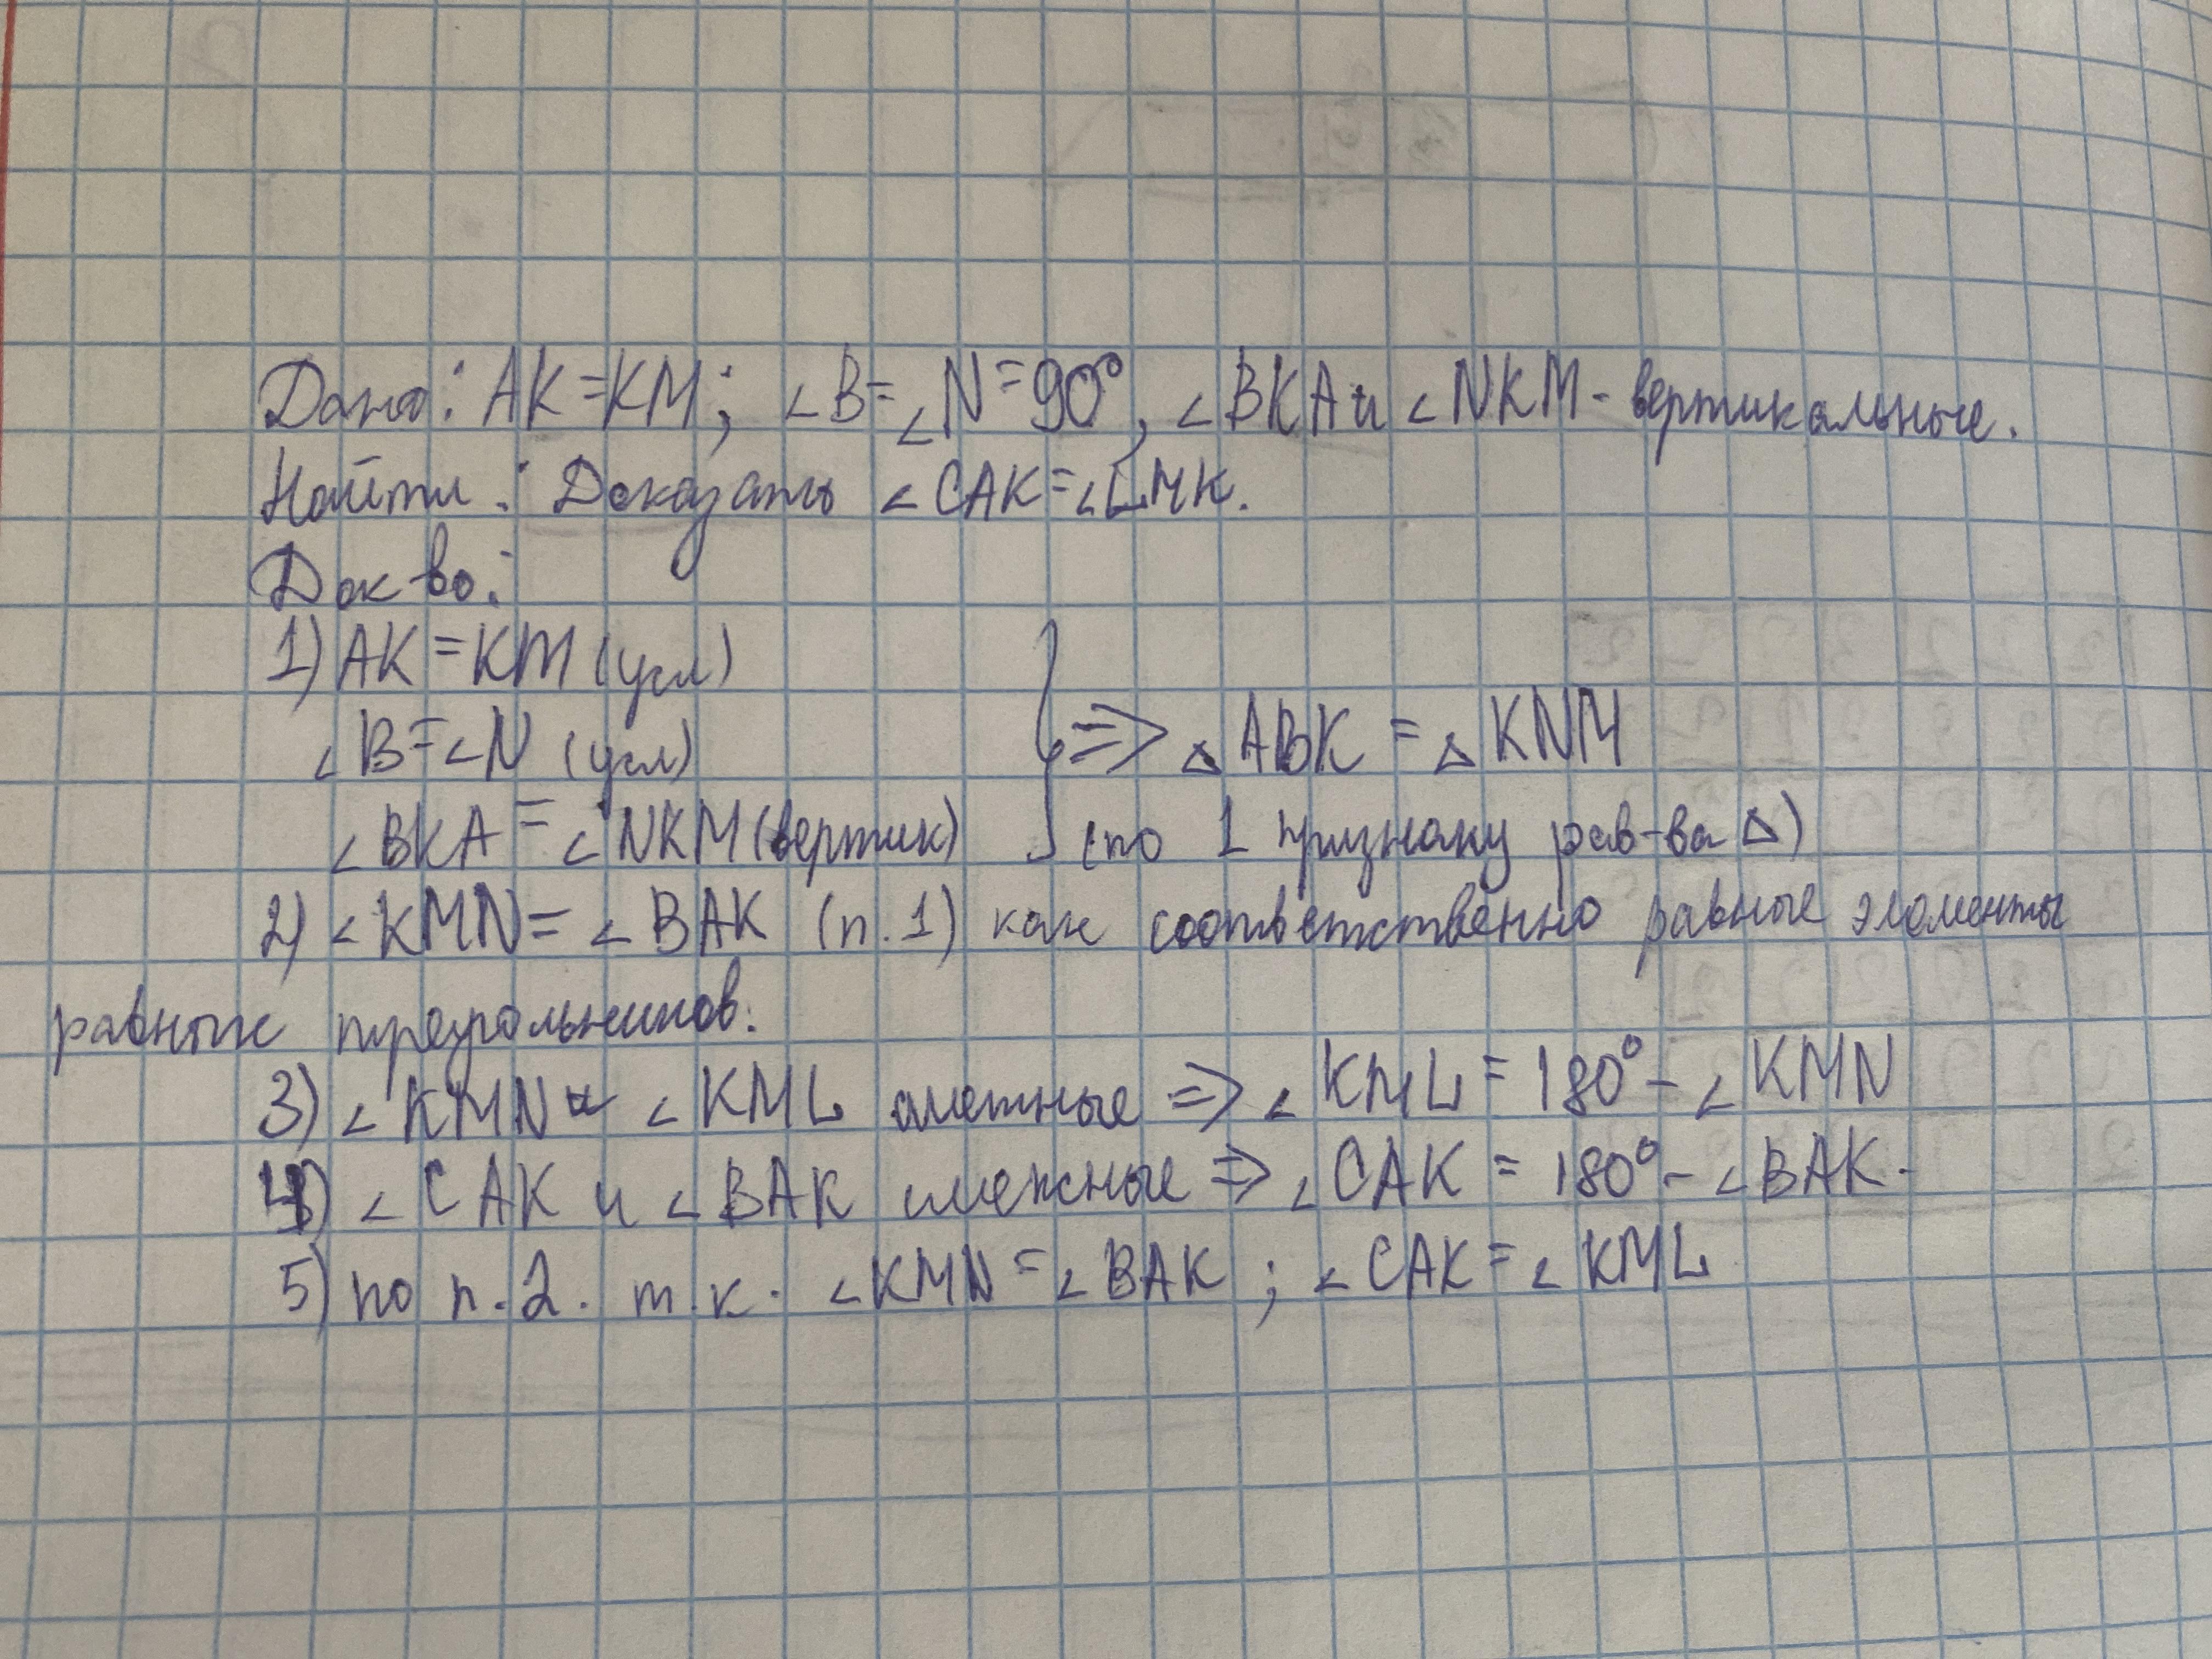 Дано: AK=KM; ∠B=∠N=90°, ∠BKA и ∠NKM - вертикальные.
Найти: Доказать ∠CAK=∠LMK.
Док во:
1) AK=KM (усл)
∠B=∠N (усл)
⇒ △ABK = △KNM
∠BKA = ∠NKM (вертик) (по 1 признаку рав-ва △)
2) ∠KMN = ∠BAK (п.1) как соответственно равные элементы
равных треугольников.
3) ∠KMN и ∠KML смежные ⇒ ∠KML = 180° - ∠KMN
4) ∠CAK и ∠BAK смежные ⇒ ∠CAK = 180° - ∠BAK.
5) по п.2. т.к. ∠KMN = ∠BAK ; ∠CAK = ∠KML